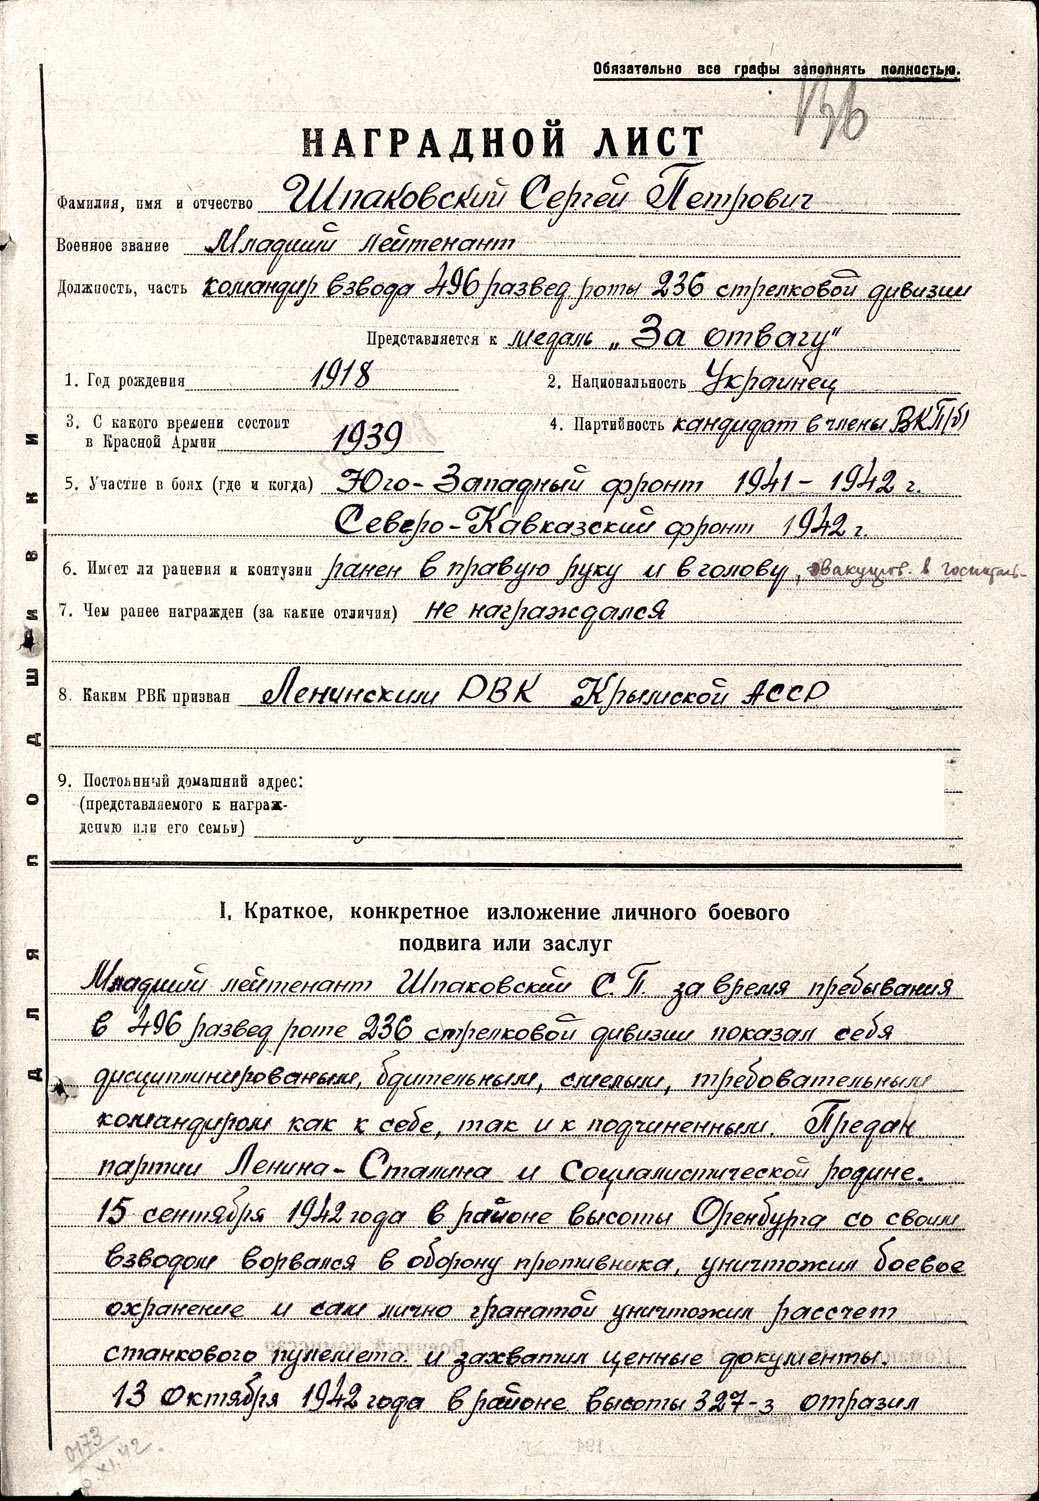 Обязательно все графы заполнять полностью.
НАГРАДНОЙ ЛИСТ
Фамилия, имя и отчество Шпаковский Сергей Петрович
Военное звание Младший лейтенант
Должность, часть командир взвода 496 развед роты 236 стрелковой дивизии
Представляется к медаль „За отвагу"
1. Год рождения 1918 2. Национальность Украинец
3. С какого времени состоит
в Красной Армии 1939 4. Партийность кандидат в члены ВКП(б)
5. Участие в боях (где и когда) Юго-Западный фронт 1941-1942 г.
Северо-Кавказский фронт 1942 г.
6. Имеет ли ранения и контузии ранен в правую руку и в голову, эвакуиров. в госпиталь-
7. Чем ранее награжден (за какие отличия) не награждался
8. Каким РВК призван Ленинским РВК Крымской АССР
9. Постоянный домашний адрес:
(представляемого к награж-
дению или его семьи)
ДЛЯ ПОДШИВКИ
I, Краткое, конкретное изложение личного боевого
подвига или заслуг
Младший лейтенант Шпаковский С.П. за время пребывания
в 496 развед роте 236 стрелковой дивизии показал себя
дисциплинированым, бдительным, смелым, требовательным
командиром как к себе, так и к подчиненным. Предан
партии Ленина-Сталина и Социалистической родине.
15 сентября 1942 года в районе высоты Оренбурга со своим
взводом ворвался в оборону противника, уничтожил боевое
охранение и сам лично гранатой уничтожил рассчет
станкового пулемета и захватил ценные документы.
13 Октября 1942 года в районе высоты 327-з отразил
0173
.XI.42.